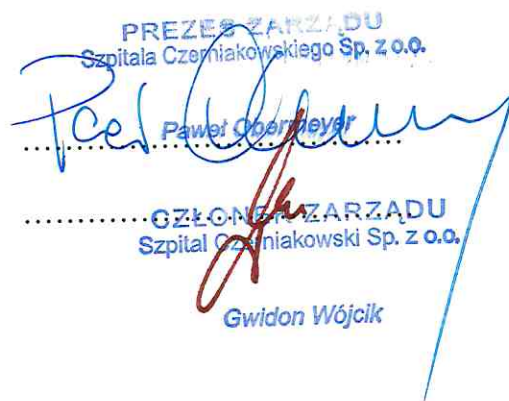 PREZES ZARZĄDU
Szpitala Czerniakowskiego Sp. z o.o.
Paweł Obermeyer
CZŁONEK ZARZĄDU
Szpital Czerniakowski Sp. z o.o.
Gwidon Wójcik